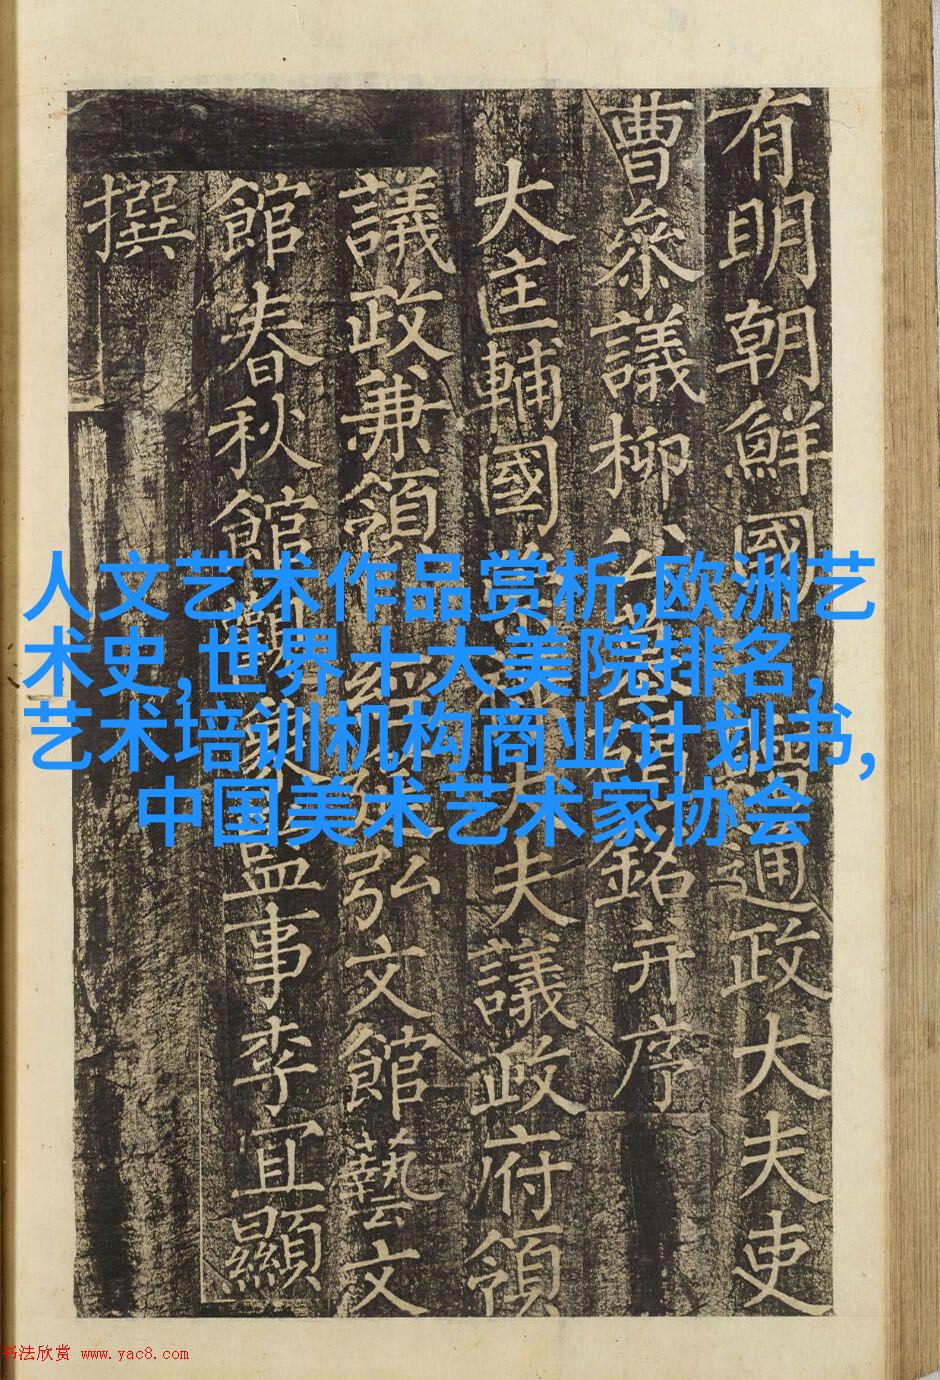 有明朝鮮國贈通政大夫吏
曹參議柳公墓碣銘并序
大匡輔國崇祿大夫議政府領
議政兼領經筵弘文館藝文
館春秋館觀象監事李宜顯
撰
人文艺术作品赏析,欧洲艺
术史,世界十大美院排名,
艺术培训机构商业计划书,
中国美术艺术家协会
书法欣赏 www.yac8.com